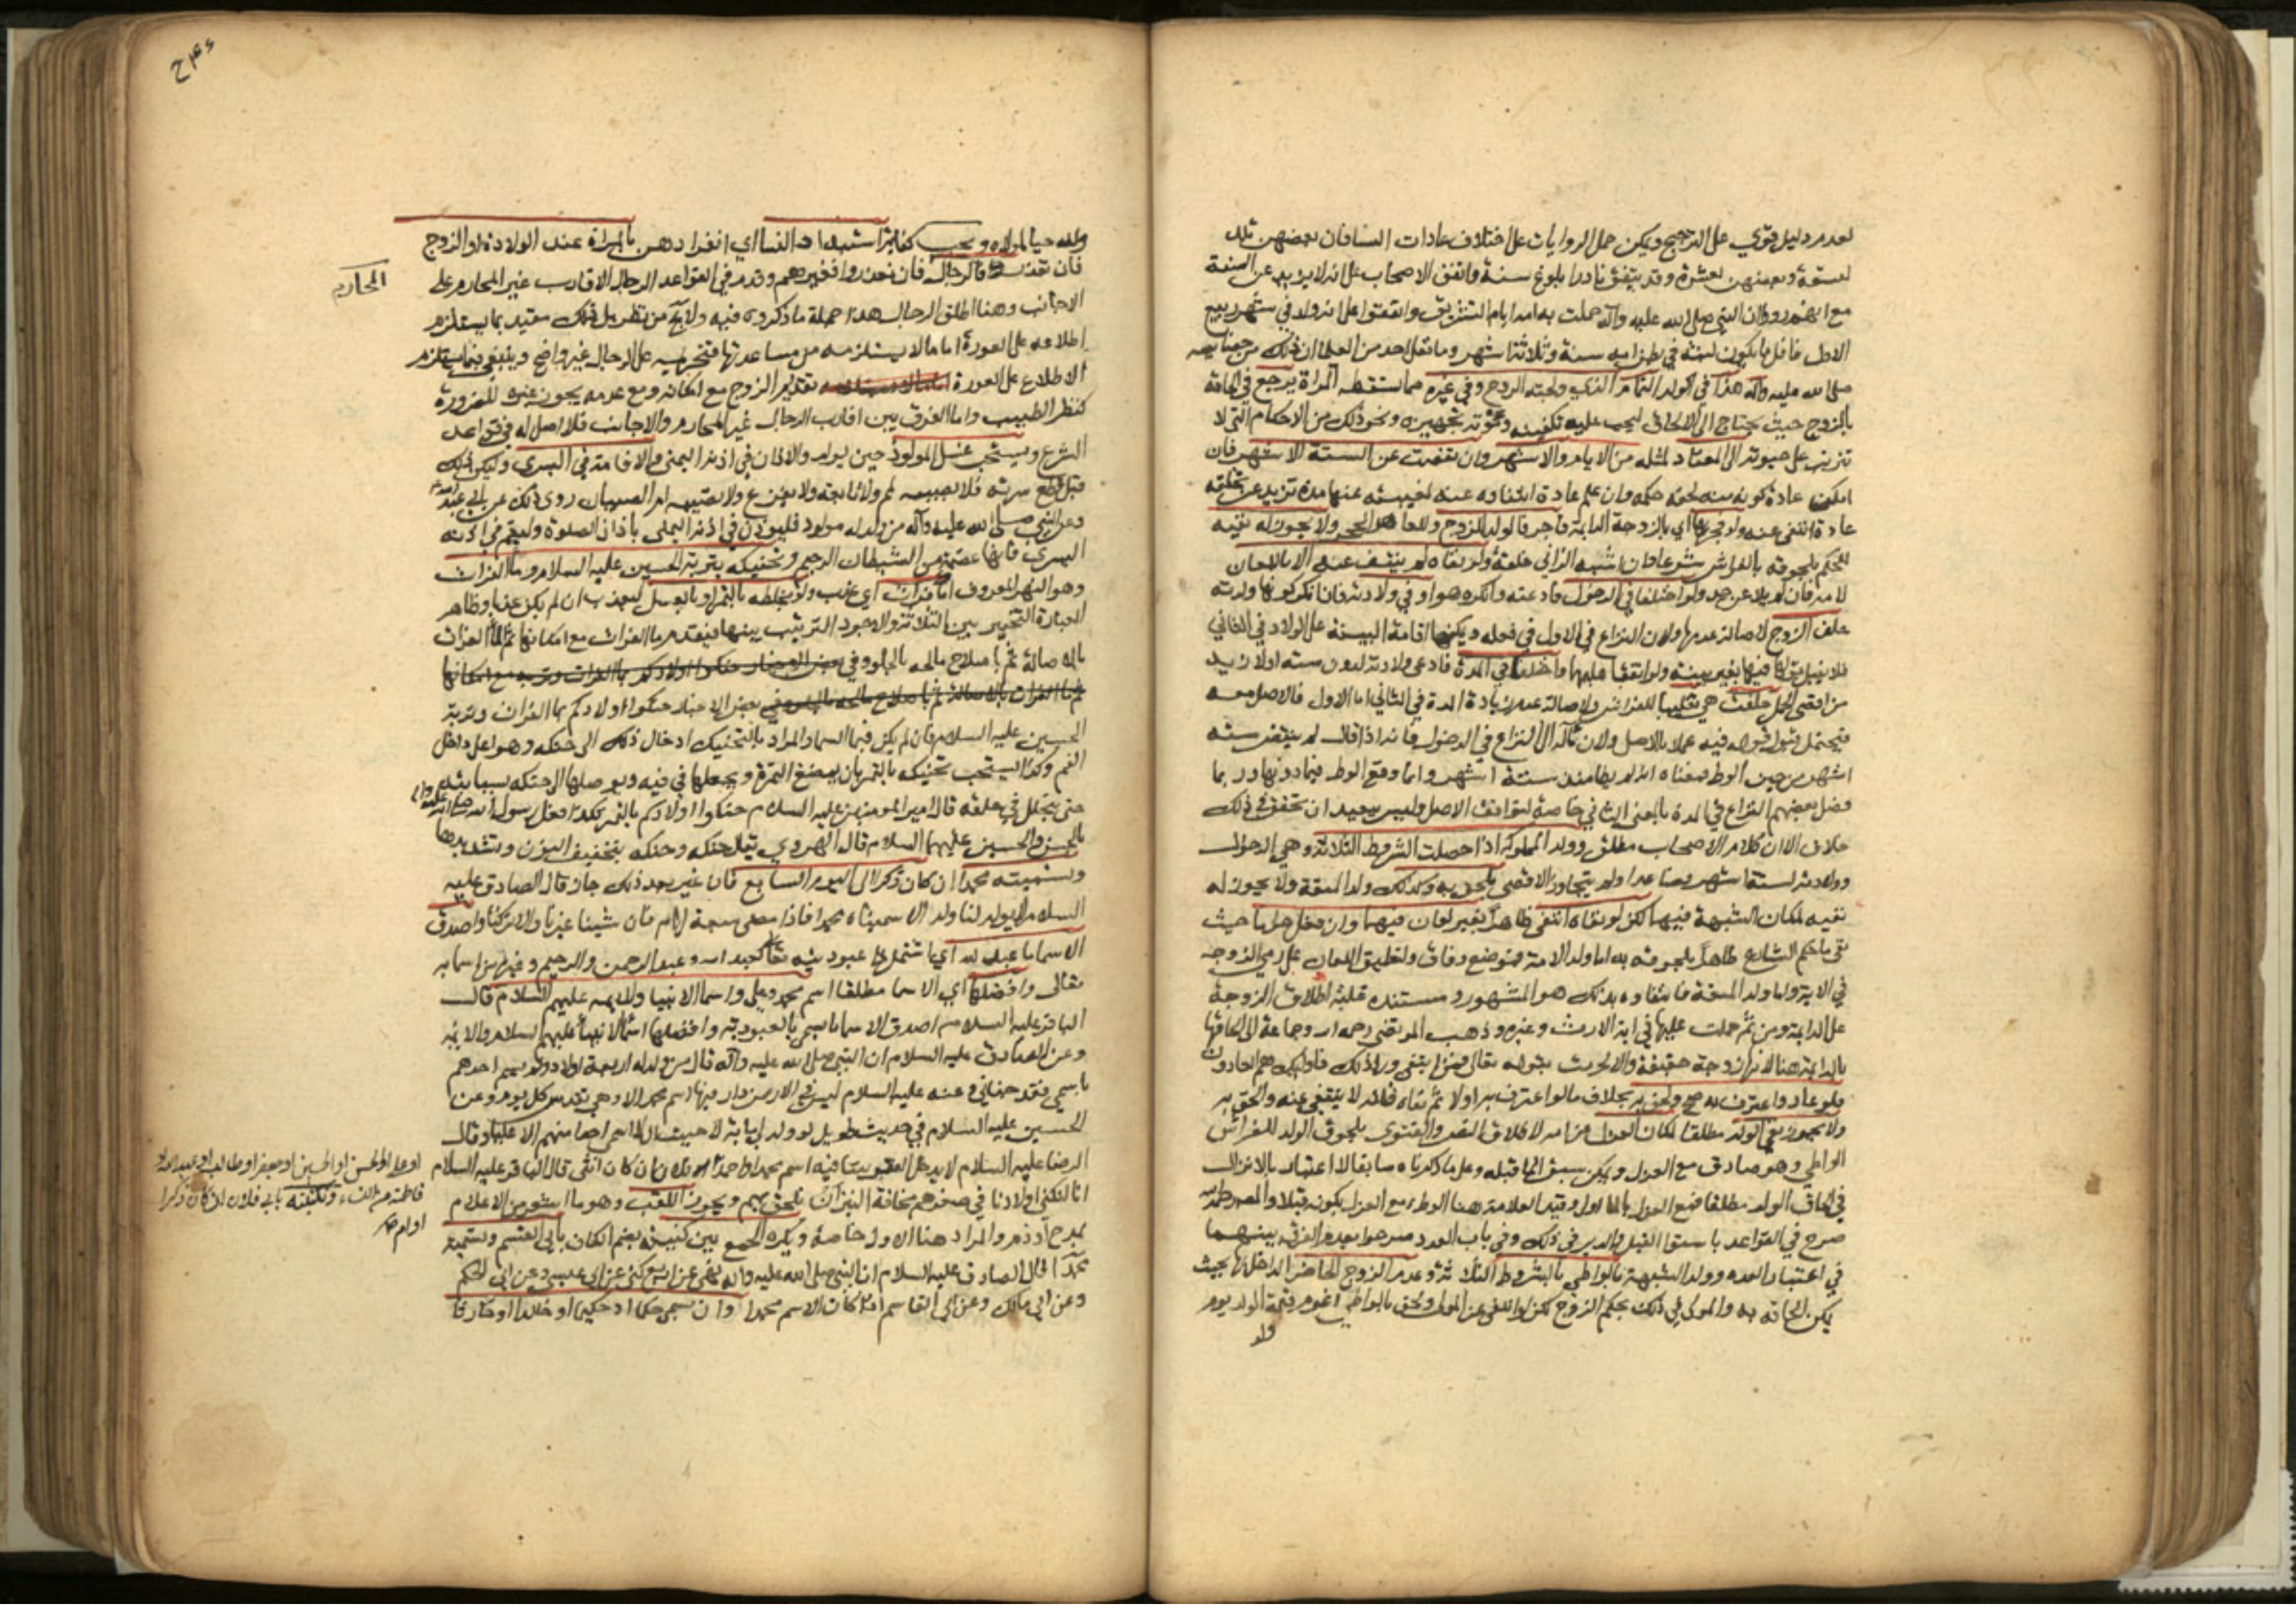 لعدم دليل قوي على الترجيح ويمكن حمل الروايات على اختلاف عادات النساء فان بعضهن تلد
لتسعة وبعضهن لعشرة وقد يتفق نادرا بلوغ سنة واتفق الاصحاب على انه لا يزيد عن السنة
مع انهم رووا ان النبي صلى الله عليه وآله حملت به امه ايام التشريق واتفقوا على انه ولد في شهر ربيع
الاول فاقل ما يكون لبثه في بطن امه سنة وثلاثة اشهر وما نقل احد من العلماء ان ذلك من خصائصه
صلى الله عليه وآله هذا في الولد التام الذي ولجته الروح وفي غيره مما تسقطه المرأة يرجع في الحاقة
بالزوج حيث يحتاج الى الالحاق ليجب عليه تكفينه ومؤنة تجهيزه ونحو ذلك من الاحكام التي لا
تترتب على حيوته الى المعتاد لمثله من الايام والاشهر وان نقصت عن الستة الاشهر فان
امكن عادة كونه منه لحقه حكمه وان علم عادة انتفاوه عنه لغيبته عنها مدة تزيد عن تخلقه
عادة انتفى عنه ولو فجر بها اي بالزوجة الدايمة فاجر فالولد للزوج وللعاهر الحجر ولا يجوز له نفيه
للحكم بلحوقه بالفراش شرعا وان اشبه الزاني خلقة ولو نفاه لم ينتف عنه الا باللعان
لامه فان لم يلاعن حد ولو اختلفا في الدخول فادعته وانكره هو او في ولادته فانكر كونها ولدته
حلف الزوج لاصالة عدمهما ولان النزاع في الاول في فعله ويمكنها اقامة البينة على الولادة في الثاني
فلا يقبل قولها فيها بغير بينة ولو اتفقا عليهما واختلفا في المدة فادعى ولادته لدون ستة او لازيد
من اقصى الحمل حلفت هي تغليبا للفراش ولاصالة عدم زيادة المدة في الثاني اما الاول فالاصل معه
فيحتمل قبول قوله فيه عملا بالاصل ولان مآله الى النزاع في الدخول فانه اذا قال لم ينقض ستة
اشهر من حين الوطء فمعناه انه لم يطأ منذ ستة اشهر وانما وقع الوطء فيما دونها وربما
فسر بعضهم النزاع في المدة بالمعنى الثاني خاصة ليوافق الاصل وليس ببعيد ان تحقق في ذلك
خلاف الا ان كلام الاصحاب مطلق وولد المملوكة اذا حصلت الشروط الثلاثة وهي الدخول
وولادته لستة اشهر فصاعدا ولم يتجاوز الاقصى يلحق به وكذلك ولد المتعة ولا يجوز له
نفيه لمكان الشبهة فيهما لكن لو نفاه انتفى ظاهرا بغير لعان فيهما وان فعل حراما حيث
نفى ما حكم الشارع ظاهرا بلحوقه به اما ولد الامة فموضع وفاق ولتعليق اللعان على رمي الزوجة
في الاية واما ولد المتعة فانتفاوه بذلك هو المشهور ومستنده غلبة اطلاق الزوجة
على الدايمة ومن ثم حملت عليها في اية الارث وغيره وذهب المرتضى رحمه الله وجماعة الى الحاقها
بالدايمة هنا لانها زوجة حقيقة والا لحرمت بقوله تعالى فمن ابتغى وراء ذلك فاولئك هم العادون
فلو عاد واعترف به صح ولحق به بخلاف ما لو اعترف به اولا ثم نفاه فانه لا ينتفي عنه والحق به
ولا يجوز نفي الولد مطلقا لمكان العزل عن امه لاطلاق النص والفتوى بلحوق الولد للفراش
الواطي وهو صادق مع العزل ويمكن سبق الماء قبله وعلى ما ذكرناه سابقا لا اعتبار بالانزال
في الحاق الولد مطلقا فمع العزل بالماء اولى وقيد العلامة هنا الوطء مع العزل بكونه قبلا والمصنف رحمه الله
صرح في القواعد باستواء القبل والدبر في ذلك وفي باب العدد صرحوا بعدم الفرق بينهما
في اعتبار العدة وولد الشبهة يلحق بالواطي بالشروط الثلاثة وعدم الزوج الحاضر الداخل بها بحيث
يمكن الحاقه به والمولى في ذلك بحكم الزوج لكن لو انتفى عن المولى ولحق بالواطي اغرم قيمة الولد يوم
ولد
ولد حيا لمولاه ويجب كفاية استبداد النساء اي انفرادهن بالمرأة عند الولادة او الزوج
فان تعذر فالرجال فان تعذروا فغيرهم وقدم في القواعد الرجال الاقارب غير المحارم على
المحارم
الاجانب وهنا اطلق الرجال هذا جملة ما ذكروه فيه ولا يخ من نظر بل ذلك مقيد بما يستلزم
اطلاعه على العورة اما ما لا يستلزمه من مساعدتها فتحريمه على الرجال غير واضح وينبغي فيما يستلزم
الاطلاع على العورة تقديم الزوج مع امكانه ومع عدمه يجوز غيره للضرورة
كنظر الطبيب واما الفرق بين اقارب الرجال غير المحارم والاجانب فلا اصل له في قواعد
الشرع ويستحب غسل المولود حين يولد والاذان في اذنه اليمنى والاقامة في اليسرى وليكن ذلك
قبل قطع سرته فلا يصيبه لمم ولا تابعة ولا يفزع ولا تصيبه ام الصبيان روى ذلك عن ابي عبد الله
وعن النبي صلى الله عليه وآله من ولد له مولود فليؤذن في اذنه اليمنى باذان الصلوة وليقم في اذنه
اليسرى فانها عصمة من الشيطان الرجيم وتحنيكه بتربة الحسين عليه السلام وماء الفرات
وهو النهر المعروف او ماء فرات اي عذب ولو بخلطه بالتمر او بالعسل ليعذب ان لم يكن عذبا وظاهر
العبارة التخيير بين الثلاثة والاجود الترتيب بينها فيقدم ماء الفرات مع امكانها ثم الماء الفرات
بالاصالة ثم باصلاح مالحه بالحلو وفي
بعض الاخبار حنكوا اولادكم بماء الفرات وتربة
الحسين عليه السلام فان لم يكن فبماء السماء والمراد بالتحنيك ادخال ذلك الى حنكه وهو اعلى داخل
الفم وكذا يستحب تحنيكه بالتمر بان يمضغ التمرة ويجعلها في فيه ويوصلها الى حنكه بسبابته
حتى يتحلل في حلقه قال امير المومنين عليه السلام حنكوا اولادكم بالتمر هكذا فعل رسول الله صلى الله عليه وآله
بالحسن والحسين عليهما السلام قال الهروي يقال حنكه وحنكه بتخفيف النون وتشديدها
وتسميته محمدا ان كان ذكرا الى اليوم السابع فان غير بعد ذلك جاز قال الصادق عليه
السلام لا يولد لنا ولد الا سميناه محمدا فاذا مضى سبعة ايام فان شئنا غيرنا والا تركنا واصدق
الاسماء ما عبد لله اي ما اشتمل على عبودية لله تعالى كعبد الله وعبد الرحمن والرحيم وغيره من اسمائه
تعالى وافضلها اي الاسماء مطلقا اسم محمد وعلي واسماء الانبياء والائمة عليهم السلام قال
الباقر عليه السلام اصدق الاسماء ما سمي بالعبودية وافضلها اسماء الانبياء عليهم السلام والائمة
وعن الصادق عليه السلام ان النبي صلى الله عليه وآله قال من ولد له اربعة اولاد ولم يسم احدهم
باسمي فقد جفاني وعنه عليه السلام ليس في الارض دار فيها اسم محمد الا وهي تقدس كل يوم وعن
الحسين عليه السلام في حديث طويل لو ولد لي مائة لاحببت الا اسمي احدا منهم الا عليا وقال
الرضا عليه السلام لا يدخل الفقر بيتا فيه اسم محمد او احمد
او علي او الحسن او الحسين او جعفر او طالب او عبد الله او
فاطمة من النساء وتكنيته بابي فلان ان كان ذكرا
او ام فلان ان كان انثى قال الباقر عليه السلام
انا لنكني اولادنا في صغرهم مخافة النبز ان يلحق بهم ويجوز اللقب وهو ما اشعر من الاعلام
بمدح او ذم والمراد هنا الاول خاصة ويكره الجمع بين كنيته بضم الكاف بابي القسم وتسميته
محمدا قال الصادق عليه السلام ان النبي صلى الله عليه وآله نهى عن اربع كنى عن ابي عيسى وعن ابي الحكم
وعن ابي مالك وعن ابي القاسم اذا كان الاسم محمدا وان يسمى حكما او حكيما او خالدا او حارثا